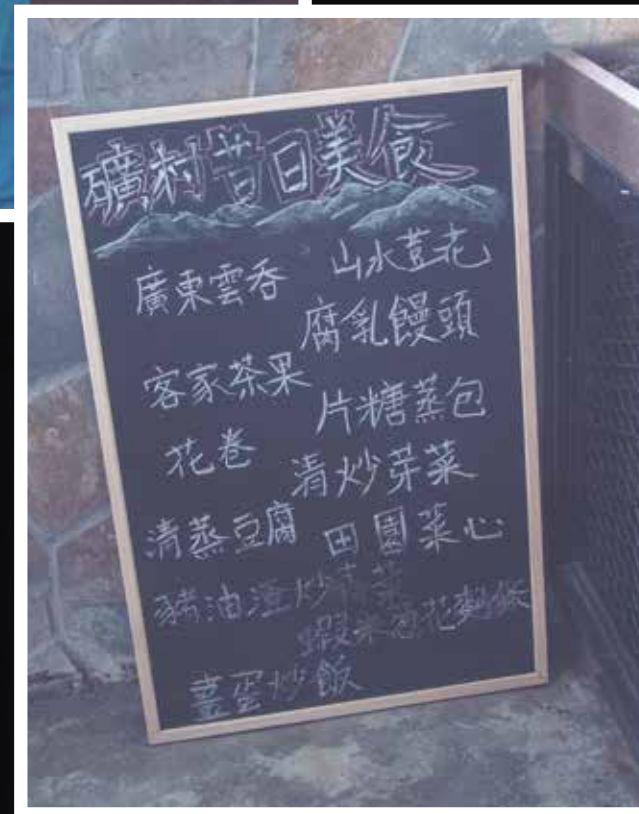 礦村昔日美飯
廣東雲吞 山水荳花
腐乳饅頭
客家茶果
片糖蒸包
花卷
清炒芽菜
清蒸豆腐 田園菜心
豬油渣炒青菜
蝦米葱花
薑蛋炒飯